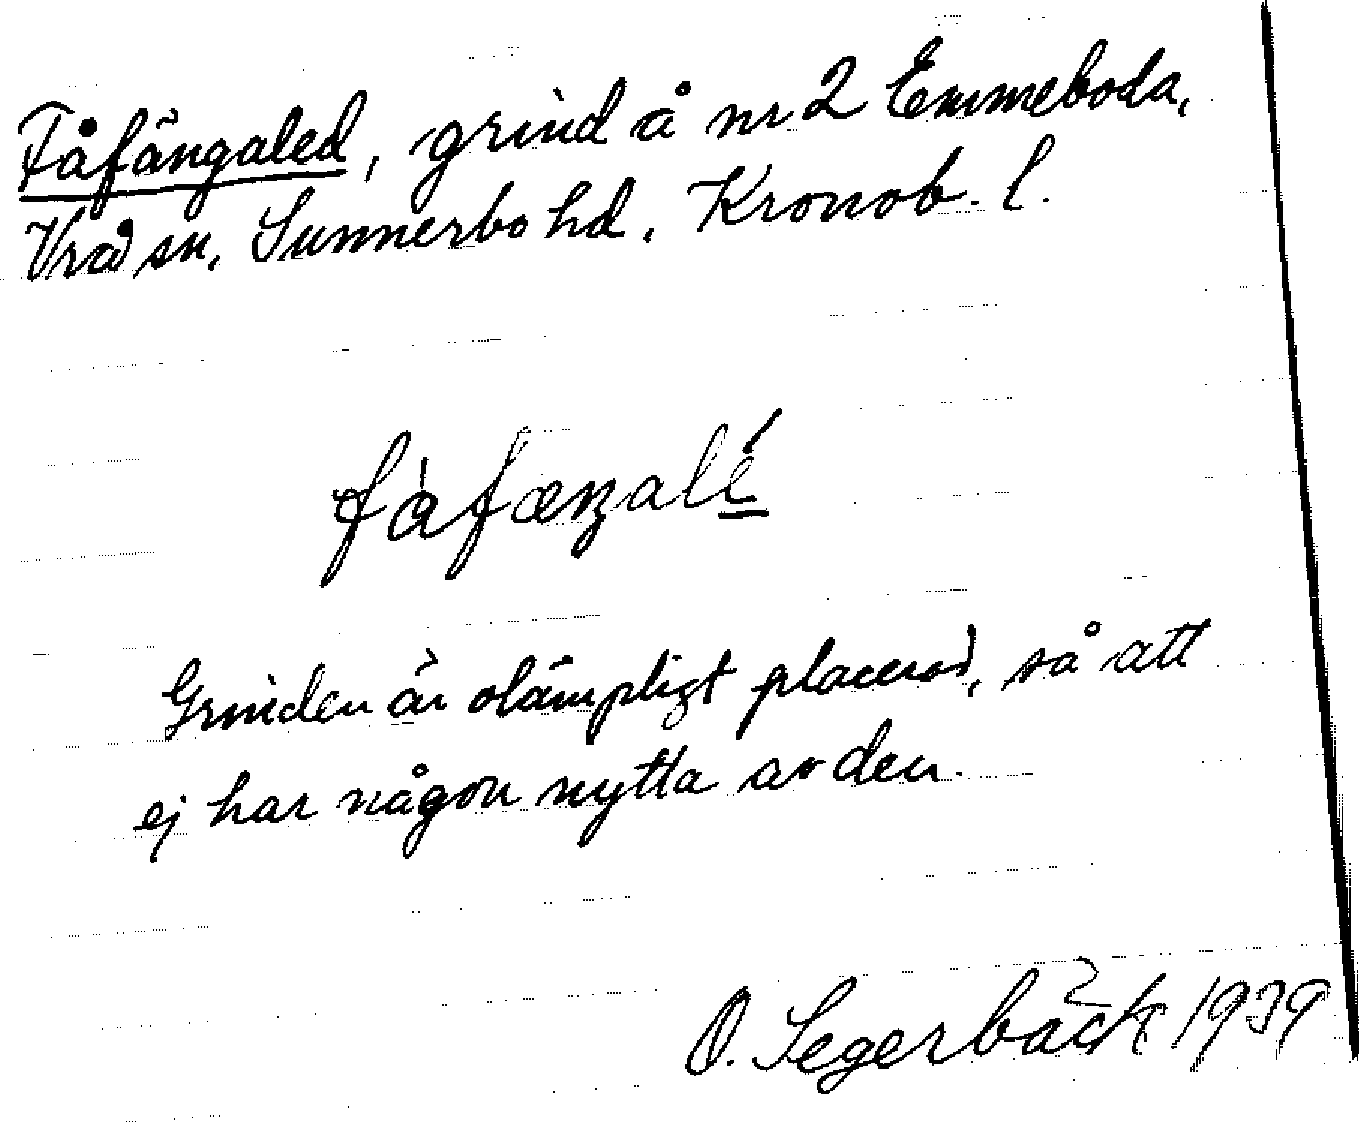 Fåfängaled, grind å nr 2 Emmeboda,
Vrå sn, Sunnerbo hd, Kronob. l.
fåfæŋalé
Grinden är olämpligt placerad, så att
ej har någon nytta av den.
O. Segerbäck 1939